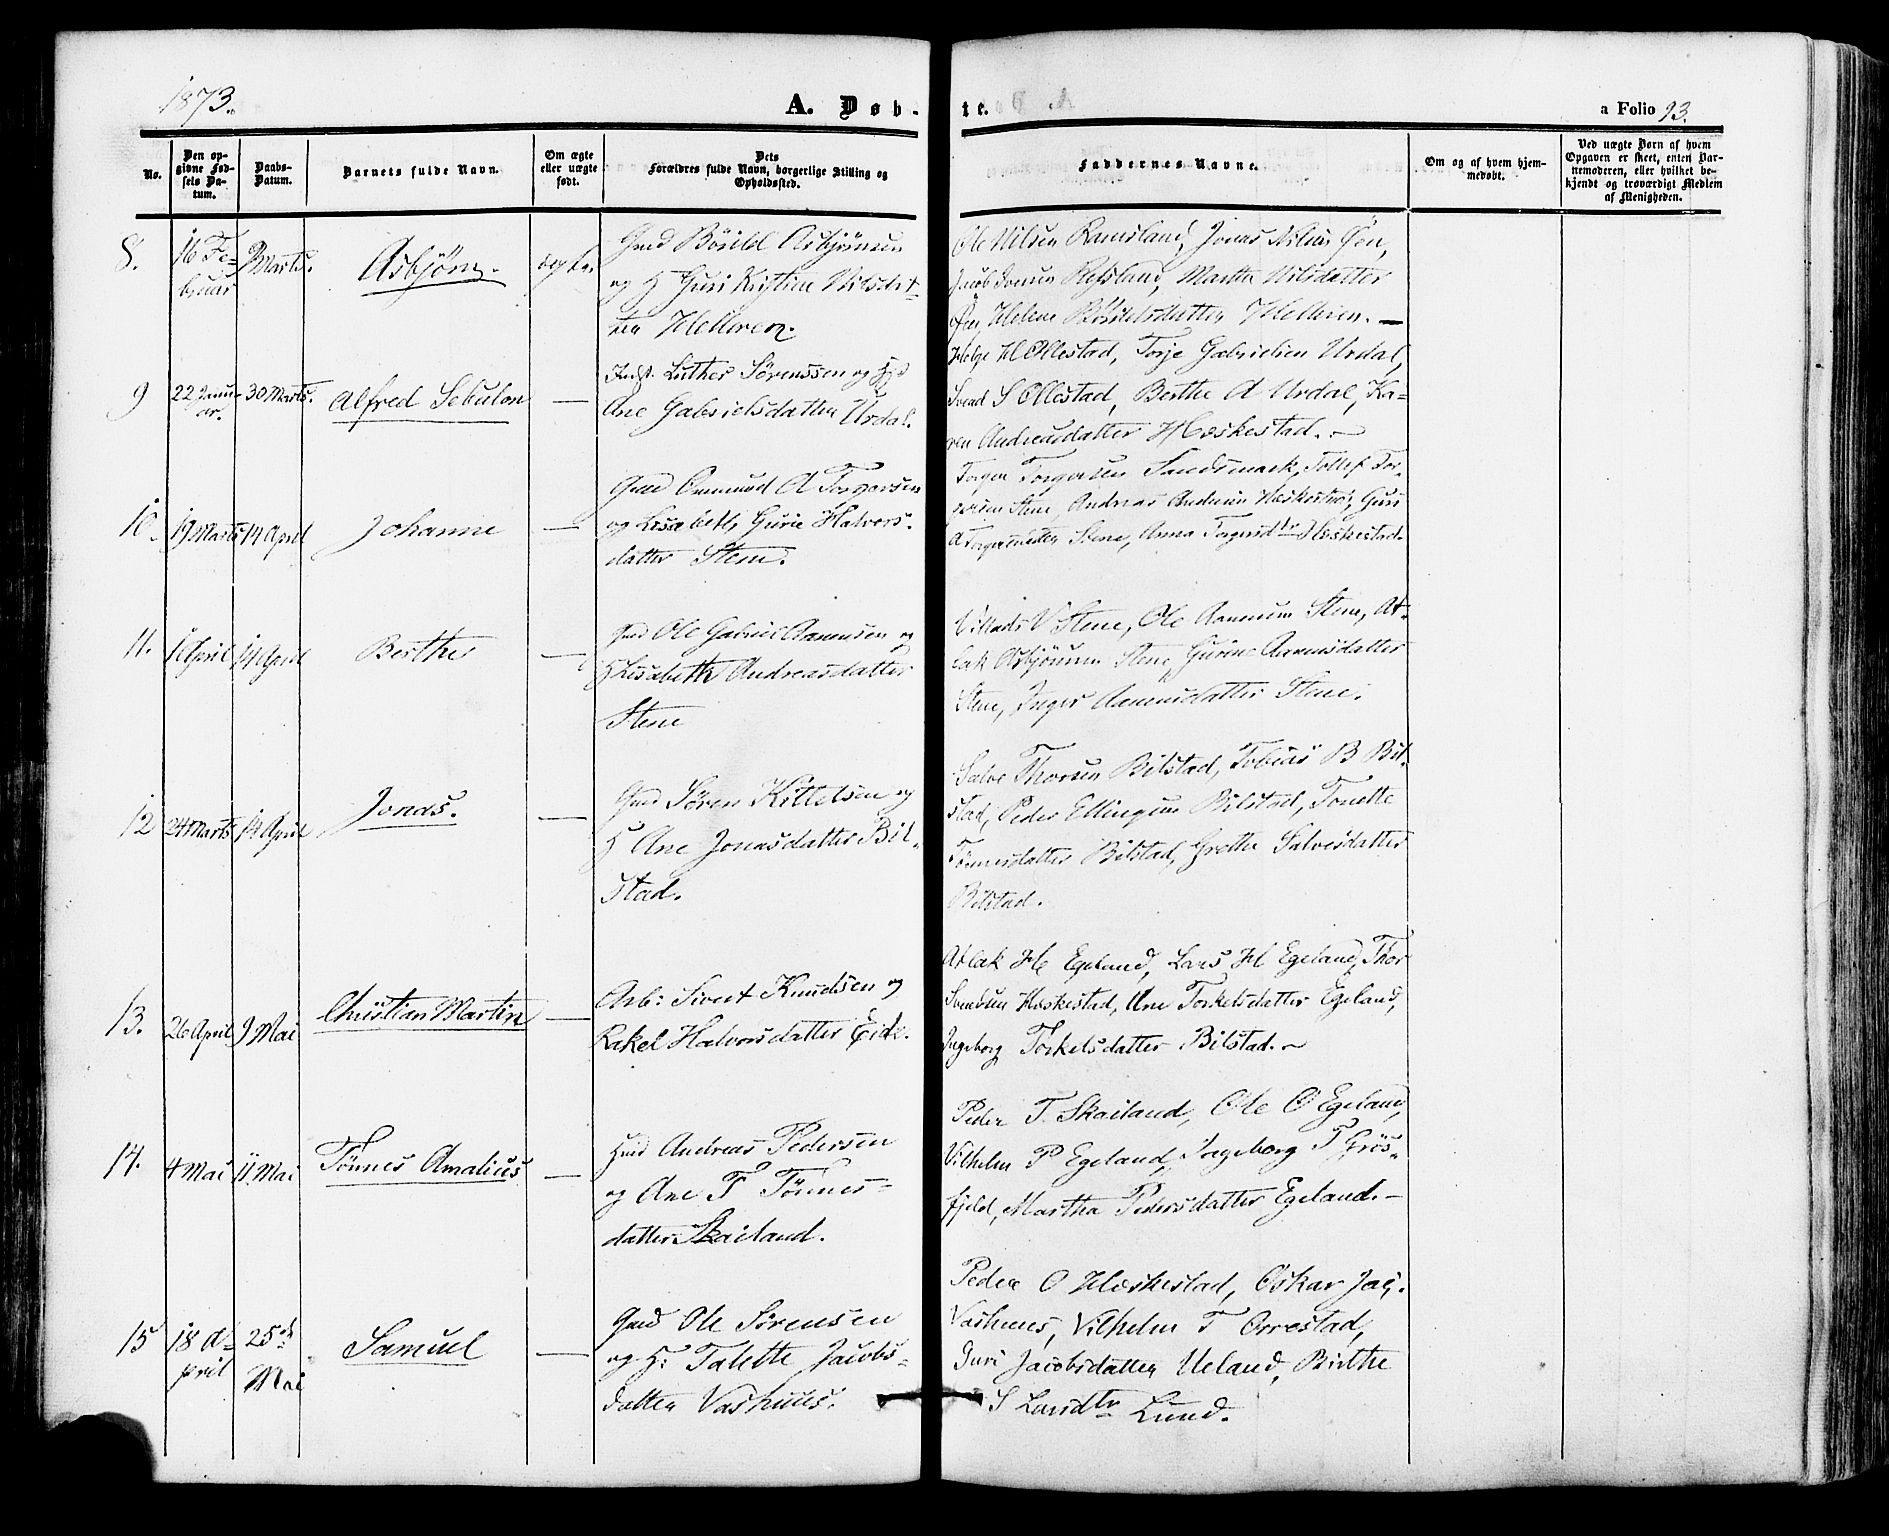 1873.
A. Døb-
te.
a Folio 93.
No.
Den op-
givne Fød-
sels Da-
tum.
Daabs-
Datum.
Barnets fulde Navn.
Om ægte
eller uægte
født.
Dets
Forældres fulde Navn, borgerlige Stilling og
Opholdssted.
Faddernes Navne.
Om og af hvem hjem-
medøbt.
Ved uægte Børn af hvem
Opgaven er skeet, enten Bar-
nemoderen, eller hvilket be-
kjendt og troværdigt Medlem
af Menigheden.
8.
16 Fe-
bruar
9 Marts.
Asbjørn.
ægte.
Gmd Bårild Asbjørnsen
og H Guri Kristine Nilsdat-
ter Helleren.
Ole Nilsen Ramsland, Jonas Nilsen Øen,
Jacob Iversen Refsland, Marthe Nilsdatter
Øen, Helene Bårildsdatter Helleren. —
9
22 Janu-
ar.
30 Marts.
Alfred Sebulon
—
Inds. Luther Sørenssen og H
Ane Gabrielsdatter Urdal.
Helge H Ollestad, Torje Gabrielsen Urdal,
Svend S Ollestad, Berthe A Urdal, Ka-
ren Andreasdatter Heskestad. —
10.
19 Marts
14 April
Johanne
—
Gmd Ommund A Torgersen
og Lisabeth Gurie Halvors-
datter Stene.
Torger Torgersen Sandsmark, Tollef Tor-
gersen Stene, Andreas Andersen Heskestad, Guri
A Torgersdatter Stene, Anna Torgersdtr Heskestad.
11.
1 April
14 April
Berthe
—
Gmd Ole Gabriel Aanensen og
H Lisabeth Andreasdatter
Stene
Villads V Stene, Ole Aanensen Stene, At-
lak Asbjørnsen Stene, Gurine Aanensdatter
Stene, Inger Aanensdatter Stene.
12
24 Marts
14 April
Jonas.
—
Gmd Sören Kittelsen og
H Ane Jonasdatter Bil-
stad.
Salve Thorsen Bilstad, Tobias B Bil-
stad, Peder Ellingsen Bilstad, Tonette
Tönnesdatter Bilstad, Grethe Salvesdatter
Bilstad.
13.
26 April
9 Mai
Christian Martin
—
Arb: Sivert Knudsen og
Rakel Halvorsdatter Eide.
Atlak H Egeland, Lars H Egeland, Thor
Svendsen Heskestad, Ane Torkelsdatter Egeland,
Ingeborg Torkelsdatter Bilstad. —
14.
4 Mai
11 Mai
Tönnes Amalius
—
Hmd Andreas Pedersen
og Ane T Tönnes-
datter Skailand.
Peder T. Skailand, Ole O Egeland,
Vilhelm P Egeland, Ingeborg T Grös-
fjeld, Martha Pedersdatter Egeland. —
15
18 A-
pril
25de
Mai
Samuel
—
Gmd Ole Sörensen
og H: Talette Jacobs-
datter Vashuus.
Peder O Heskestad, Oskar Jac.
Vashuus, Vilhelm T Orrestad,
Guri Jacobsdatter Ueland, Birthe
S Larsdtr Lund.